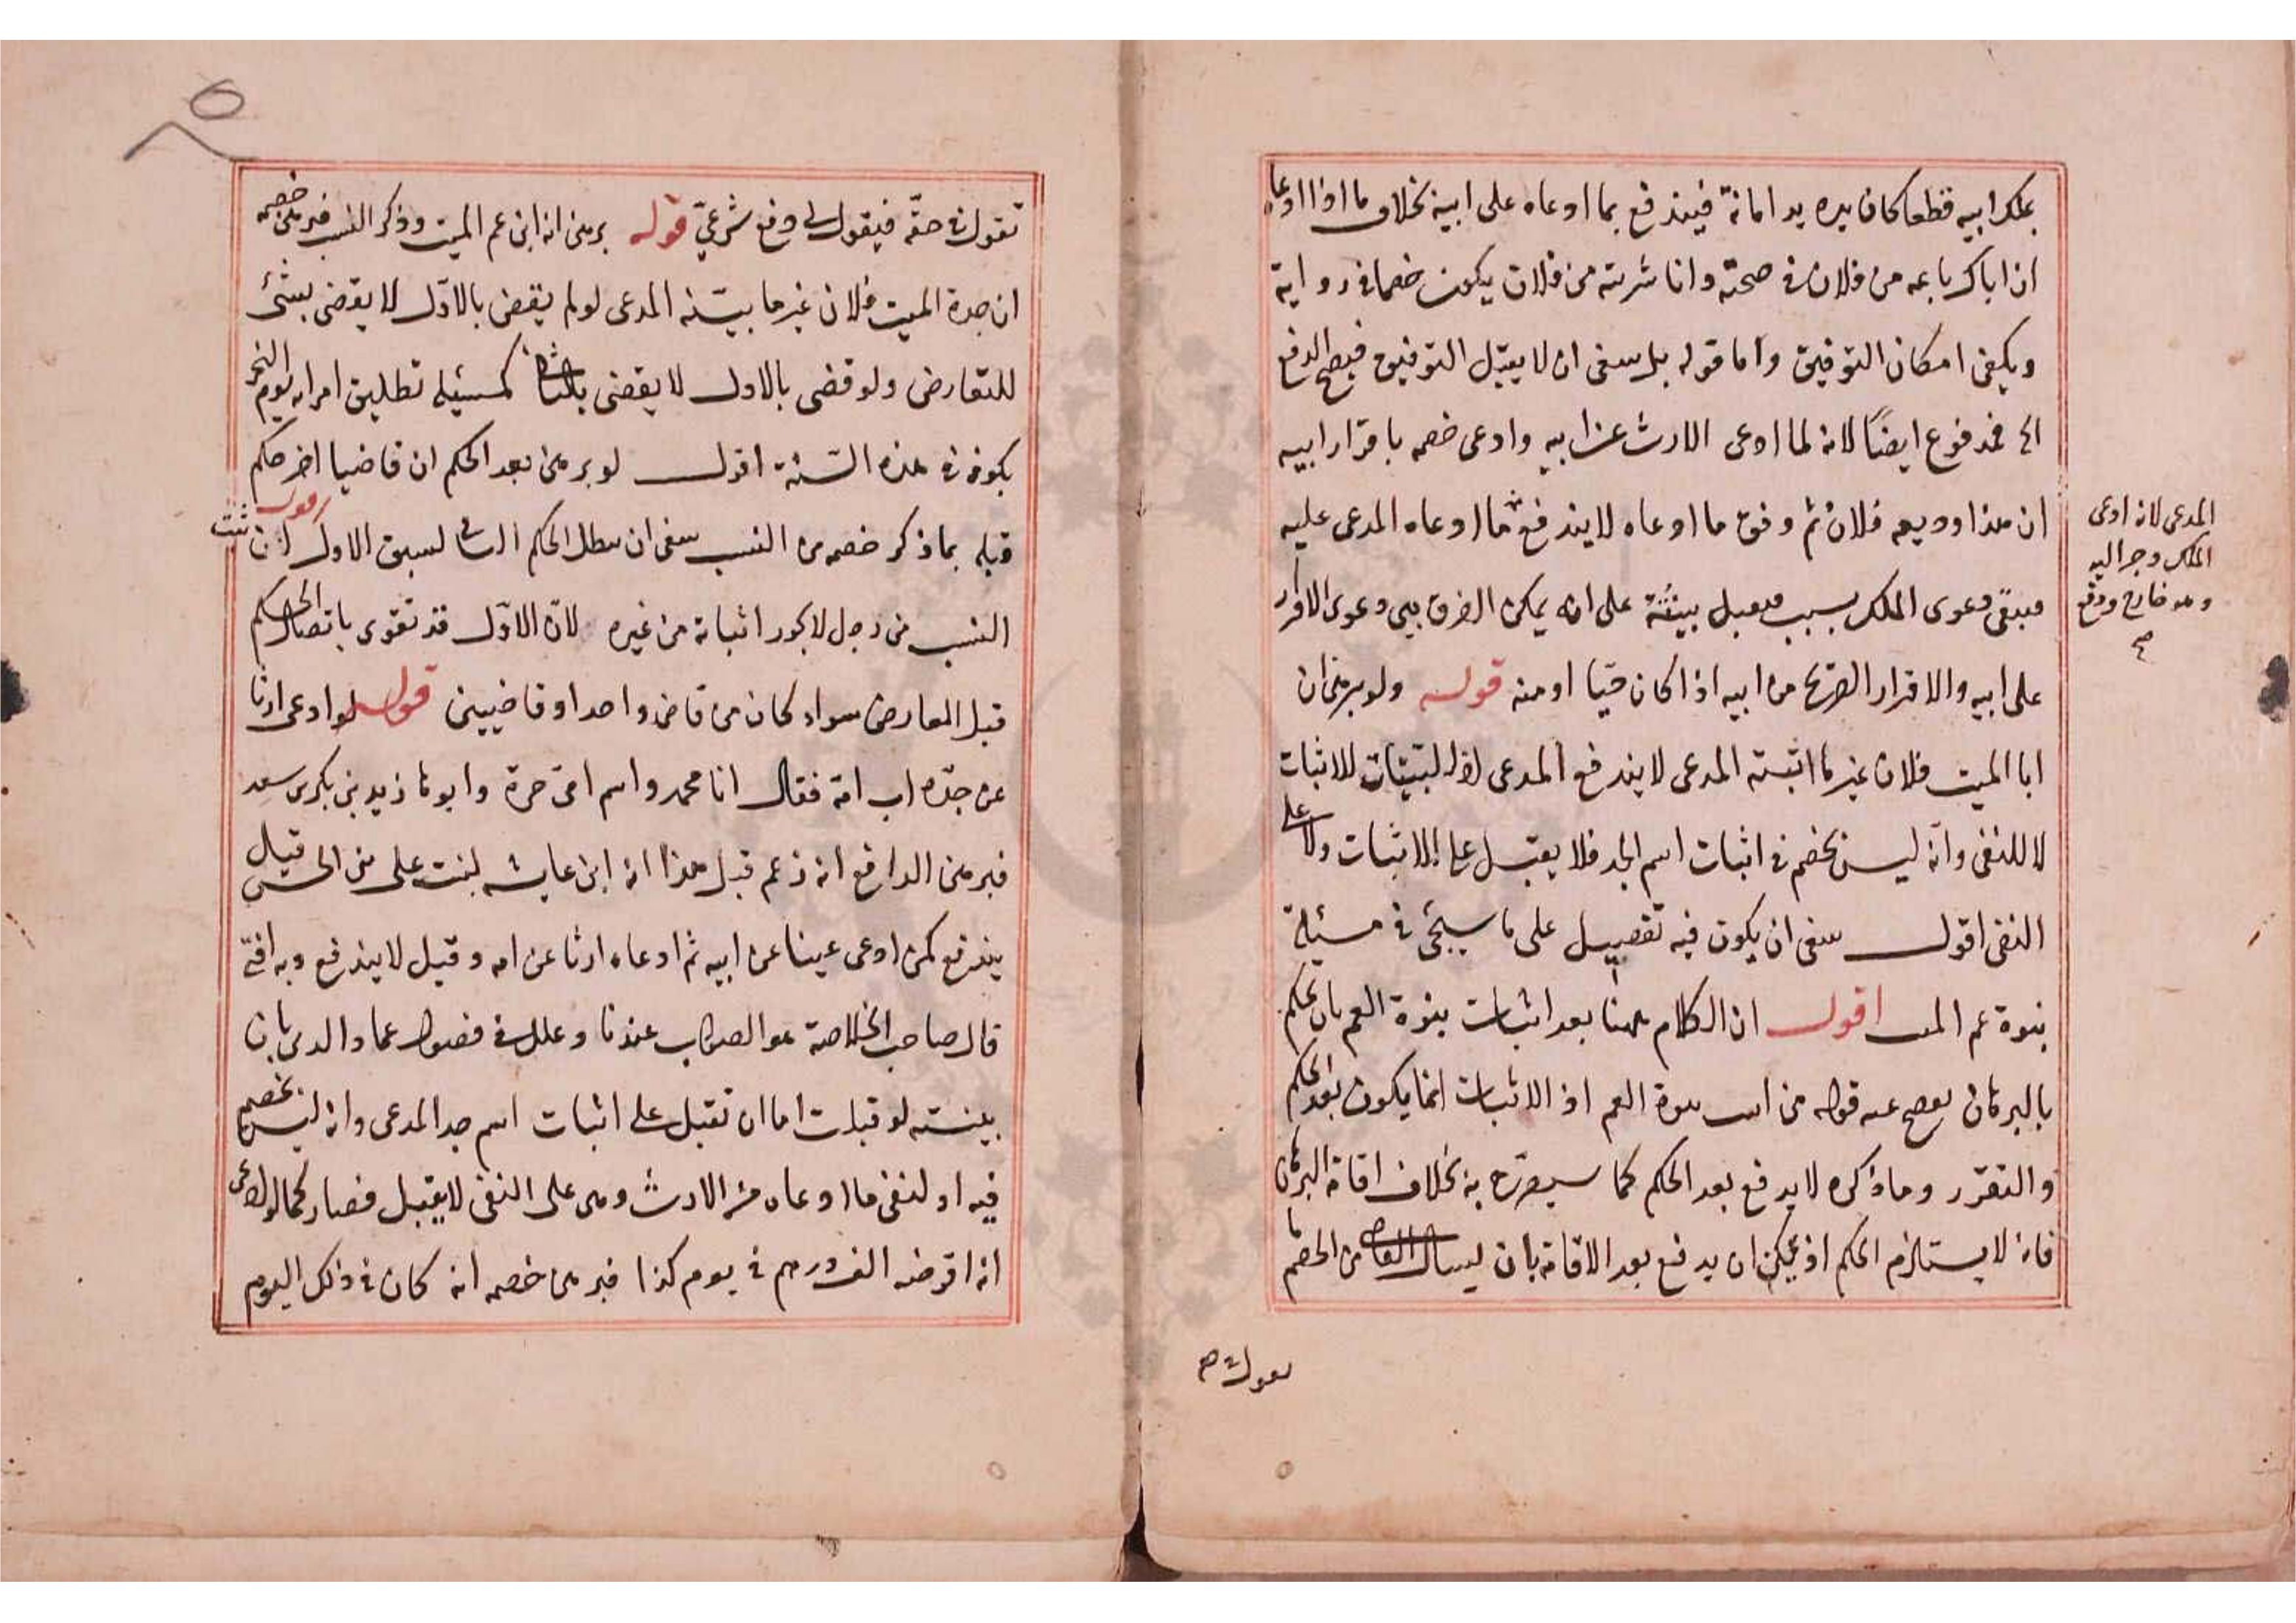 بملك ابيه قطعا كان يده يد امانة فيندفع بما ادعاه على ابيه بخلاف ما اذا ادعاه
ان اباك باعه من فلان في صحته وانا شريته من فلان يكون خصما في رواية
ويكفي امكان التوفيق واما قوله بل ينبغي ان لا يقبل التوفيق فيصح الدفع
الخ فمدفوع ايضًا لانه لما ادعى الارث عن ابيه وادعى خصمه باقرار ابيه
ان هذا وديعه فلان ثم وفق ما ادعاه لا يندفع ما ادعاه المدعى عليه
فيبقى دعوى الملك بسبب فيقبل بينته على انه يمكن الفرق بين دعوى الاقرار
على ابيه والاقرار الصريح من ابيه اذا كان حيّا او منه قوله ولو برهن ان
ابا الميت فلان غير ما اثبته المدعى لا يندفع المدعى اذ البينات للاثبات
لا للنفى وانه ليس بخصم في اثبات اسم الجد فلا يقبل على الاثبات ولا على
النفى اقول ينبغى ان يكون فيه تفصيل على ما سيجئ في مسئلة
بنوة عم الميت اقول ان الكلام ههنا بعد اثبات بنوة العم بان يحكم
بالبرهان يفصح عنه قوله من اثبت بنوة العم اذ الاثبات انما يكون بعد الحكم
والتقرر وما ذكره لا يدفع بعد الحكم كما سيصرّح به بخلاف اقامة البرهان
فانه لا يستلزم الحكم اذ يمكن ان يدفع بعد الاقامة بان ليسال القاضي من الخصم ما
تقول في حقه
المدعى لانه ادعى
الملك وجر اليه
وهو خارج ودفع
صح
تقول في حقّه فيقول لي دفع شرعيّ قوله برهن انه ابن عم الميت وذكر النسب فبرهن خصمه
ان جدة الميت فلان غير ما بيّنه المدعى لو لم يقض بالاوّل لا يقضى بشئ
للتعارض ولو قضى بالاول لا يقضى بالثاني كمسئلة تطليق امراته يوم النحر
بكوفة في هذه السّنة اقول لو برهن بعد الحكم ان قاضيا اخر حكم
قبله بما ذكر خصمه من النسب ينبغى ان يبطل الحكم الثاني لسبق الاول قوله ان ثبت
النسب من رجل لا يجوز اثباته من غيره لانّ الاوّل قد تقوى باتصال الحكم
قبل المعارض سواء كان من قاض واحد او قاضيين قوله لو ادعى ارثا
عن جدّه اب امه فقال انا محمد واسم امى حرة وابوها زيد بن بكر بن سعد
فبرهن الدافع انه زعم قبل هذا انه ابن عايشه بنت على بن الحسن قيل
يندفع كمن ادعى عينا عن ابيه ثم ادعاه ارثا عن امه وقيل لا يندفع وبه افتى
قال صاحب الخلاصة هو الصواب عندنا وعلل في فصول عماد الدين بان
بينته لو قبلت اما ان تقبل على اثبات اسم جد المدعى وانه ليس بخصم
فيه او لنفى ما ادعاه من الارث وهى على النفى لا يقبل فصار كما لو ادعى
انه اقرضه الف درهم في يوم كذا فبرهن خصمه انه كان في ذلك اليوم